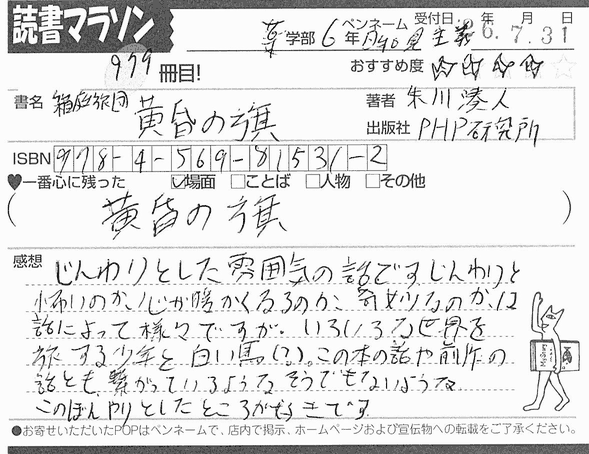 読書マラソン
薬学部6年 ペンネーム 月知見主義 受付日 26年7月31日
979冊目!
おすすめ度 ☆☆☆☆☆
書名 箱庭旅団 黄昏の旗
著者 朱川湊人
出版社 PHP研究所
ISBN 978-4-569-81531-2
♥一番心に残った ☑場面 □ことば □人物 □その他
(黄昏の旗)
感想 じんわりとした雰囲気の話です じんわりと
怖いのか、心が暖かくなるのか、奇妙なのかは
話によって様々ですが。いろいろな世界を
旅する少年と白い馬(?)。この本の話や前作の
話とも、繋がっているような そうでもないような
このぼんやりとしたところが好きです
●お寄せいただいたPOPはペンネームで、店内で掲示、ホームページおよび宣伝物への転載をご了承ください。